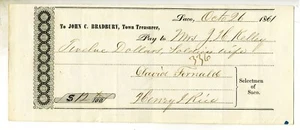 Saco, Oct 26 1861
To JOHN C. BRADBURY, Town Treasurer,
Pay to Mrs J. H. Kelley
Twelve Dollars, Soldiers wife
336
David Fernald
Selectmen of Saco.
$12 /100
Henry J Rice